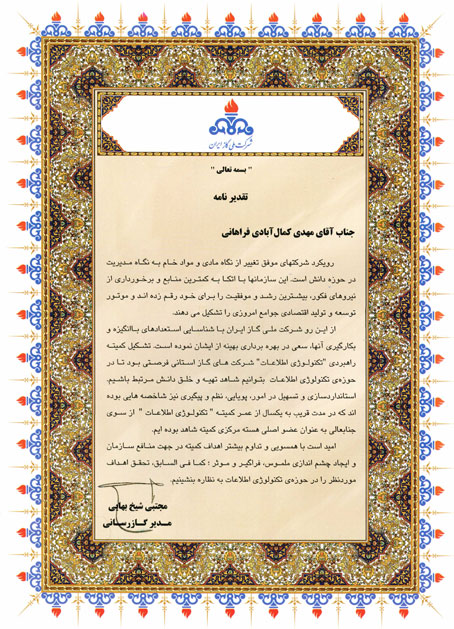 شرکت ملی گاز ایران
" بسمه تعالی "
تقدیر نامه
جناب آقای مهدی کمال‌آبادی فراهانی
رویکرد شرکتهای موفق تغییر از نگاه مادی و مواد خام به نگاه مدیریت
در حوزه دانش است. این سازمانها با اتکا به کمترین منابع و برخورداری از
نیروهای فکور، بیشترین رشد و موفقیت را برای خود رقم زده اند و موتور
توسعه و تولید اقتصادی جوامع امروزی را تشکیل می دهند.
از این رو شرکت ملی گاز ایران با شناسایی استعدادهای باانگیزه و
بکارگیری آنها، سعی در بهره برداری بهینه از ایشان نموده است. تشکیل کمیته
راهبردی "تکنولوژی اطلاعات" شرکت های گاز استانی فرصتی بود تا در
حوزه‌ی تکنولوژی اطلاعات بتوانیم شاهد تهیه و خلق دانش مرتبط باشیم.
استانداردسازی و تسهیل در امور، پویایی، نظم و پیگیری نیز شاخصه هایی بوده
اند که در مدت قریب به یکسال از عمر کمیته " تکنولوژی اطلاعات " از سوی
جنابعالی به عنوان عضو اصلی هسته مرکزی کمیته شاهد بوده ایم.
امید است با همسویی و تداوم بیشتر اهداف کمیته در جهت منافع سازمان
و ایجاد چشم اندازی ملموس، فراگیر و موثر ؛ کما فی السابق، تحقق اهداف
موردنظر را در حوزه‌ی تکنولوژی اطلاعات به نظاره بنشینیم.
مجتبی شیخ بهایی
مدیر گازرسانی